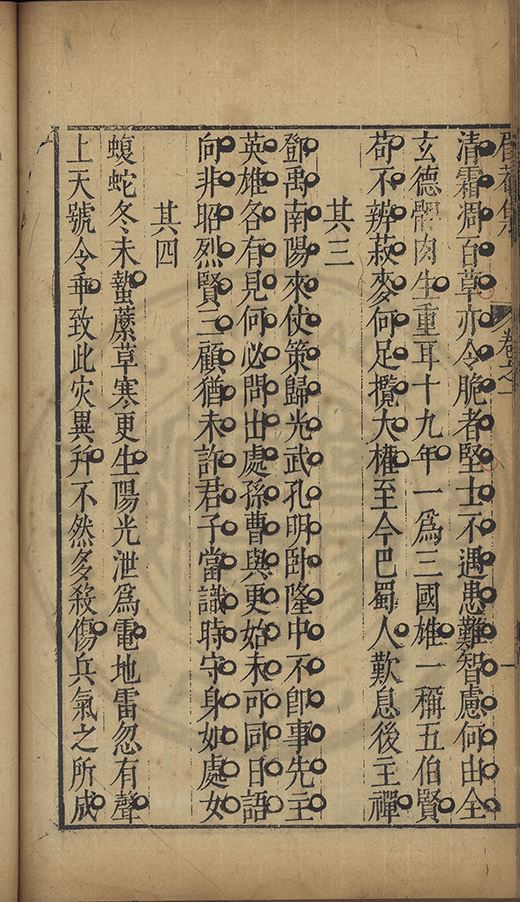 卷之一
清霜凋百草亦令脆者堅士不遇患難智慮何由全
玄德髀肉生重耳十九年一爲三國雄一稱五伯賢
苟不辨菽麥何足攬大權至今巴蜀人歎息後主禪
其三
鄧禹南陽來仗策歸光武孔明臥隆中不卽事先主
英雄各有見何必問出處孫曹與更始未可同日語
向非昭烈賢三顧猶未許君子當識時守身如處女
其四
蝮蛇冬未蟄蘪草寒更生陽光泄爲電地雷忽有聲
上天號令乖致此灾異幷不然多殺傷兵氣之所成